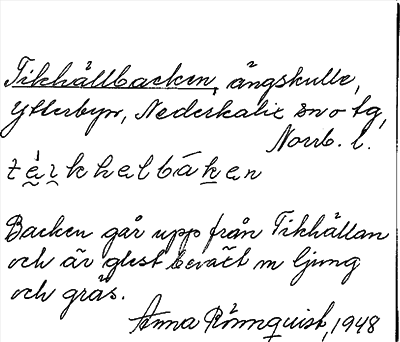 Tikhällbacken, ängskulle,
Ytterbyn, Nederkalix sn o tg,
Norrb. l.
teikhelbáken
Backen går upp från Tikhällan
och är glest beväxt m ljung
och gräs.
Anna Rönnquist, 1948